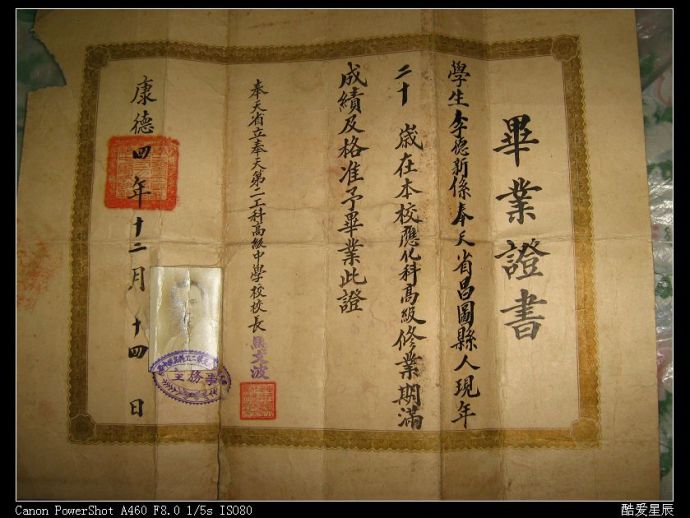 畢業證書
學生李德新係奉天省昌圖縣人現年
二十 歲在本校應化科高級修業期滿
成績及格准予畢業此證
奉天省立奉天第二工科高級中學校校長
康德四年十二月 十四 日
Canon PowerShot A460 F8.0 1/5s ISO80
酷爱星辰